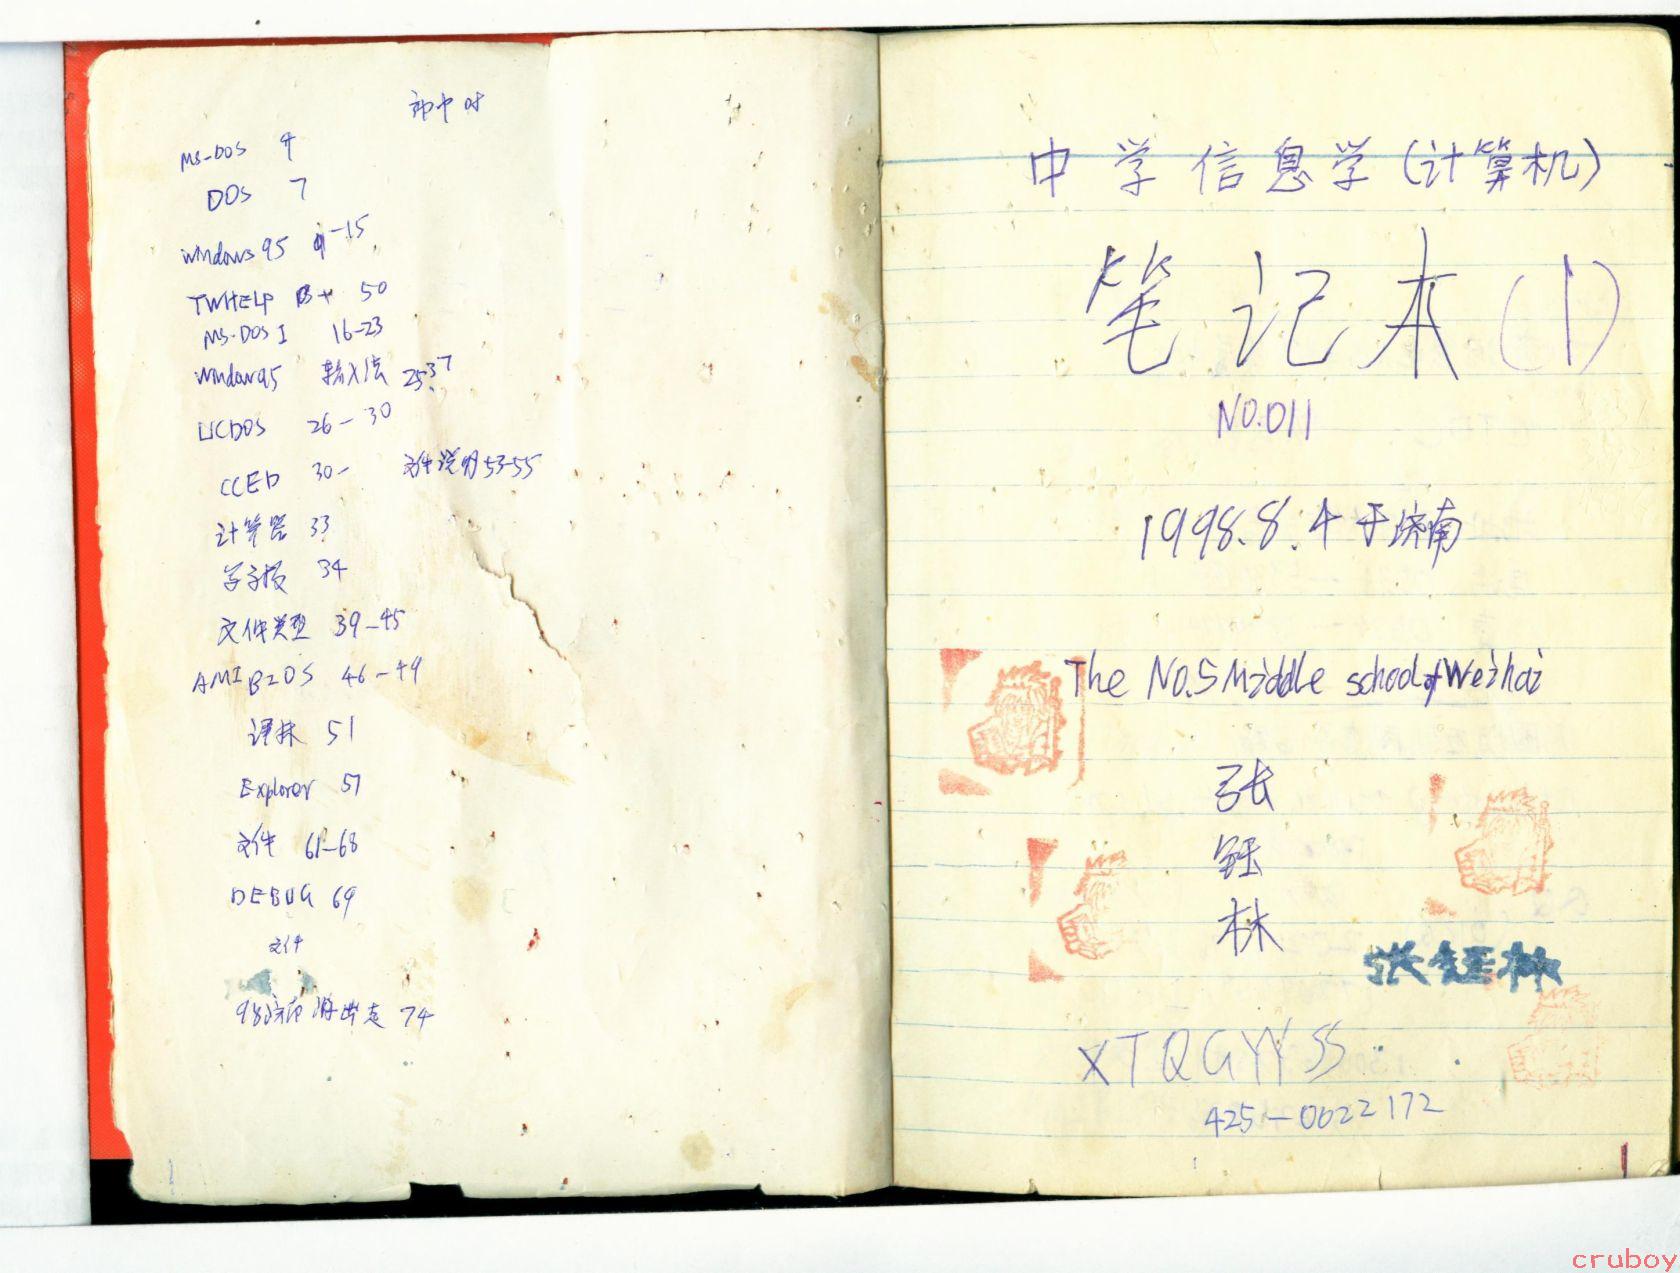 MS-DOS 4
DOS 7
Windows95 9-15
TWHELP 50
MS-DOS I 16-23
Window95 输入法 25 37
UCDOS 26-30
CCED 30- 文件说明 53-55
计算器 33
写字板 34
文件类型 39-45
AMI BIOS 46-49
51
Explorer 57
文件 61-68
DEBUG 69
文件
74
中学信息学(计算机)
笔记本(1)
NO.011
1998.8.4于济南
The No.5 Middle school of Weihai
张
钰
林
张钰林
XTQGYYSS
425-0622172
1
cruboy